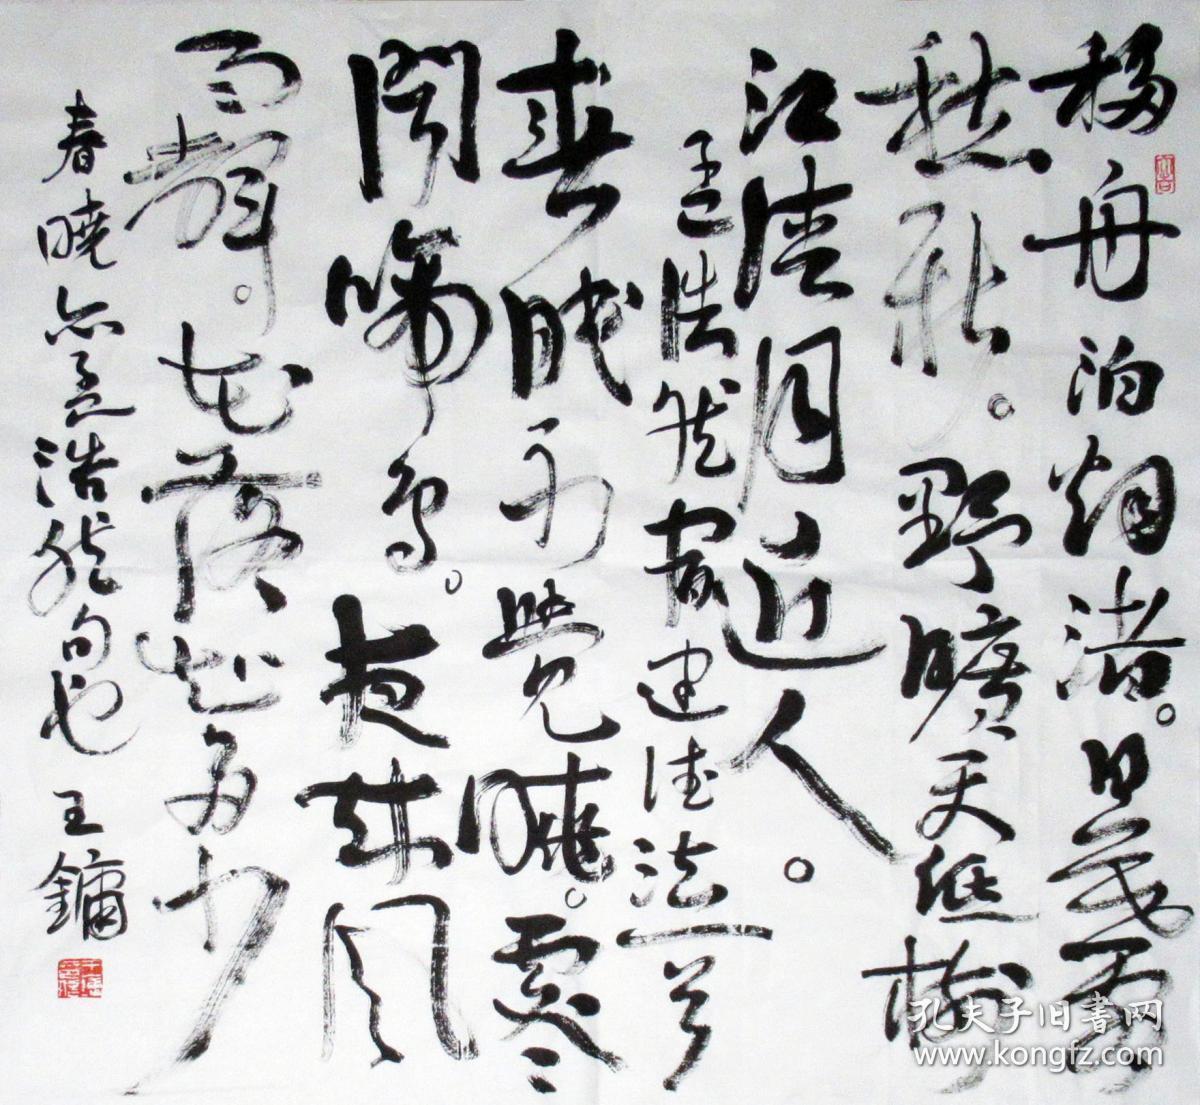 移舟泊烟渚。日暮客
愁新。野旷天低树
江清月近人。
孟浩然宿建德江一首
春眠不觉晓。处々
闻啼鸟。夜来风
雨声。花落知多少
春晓亦孟浩然句也 王镛
孔夫子旧书网
www.kongfz.com